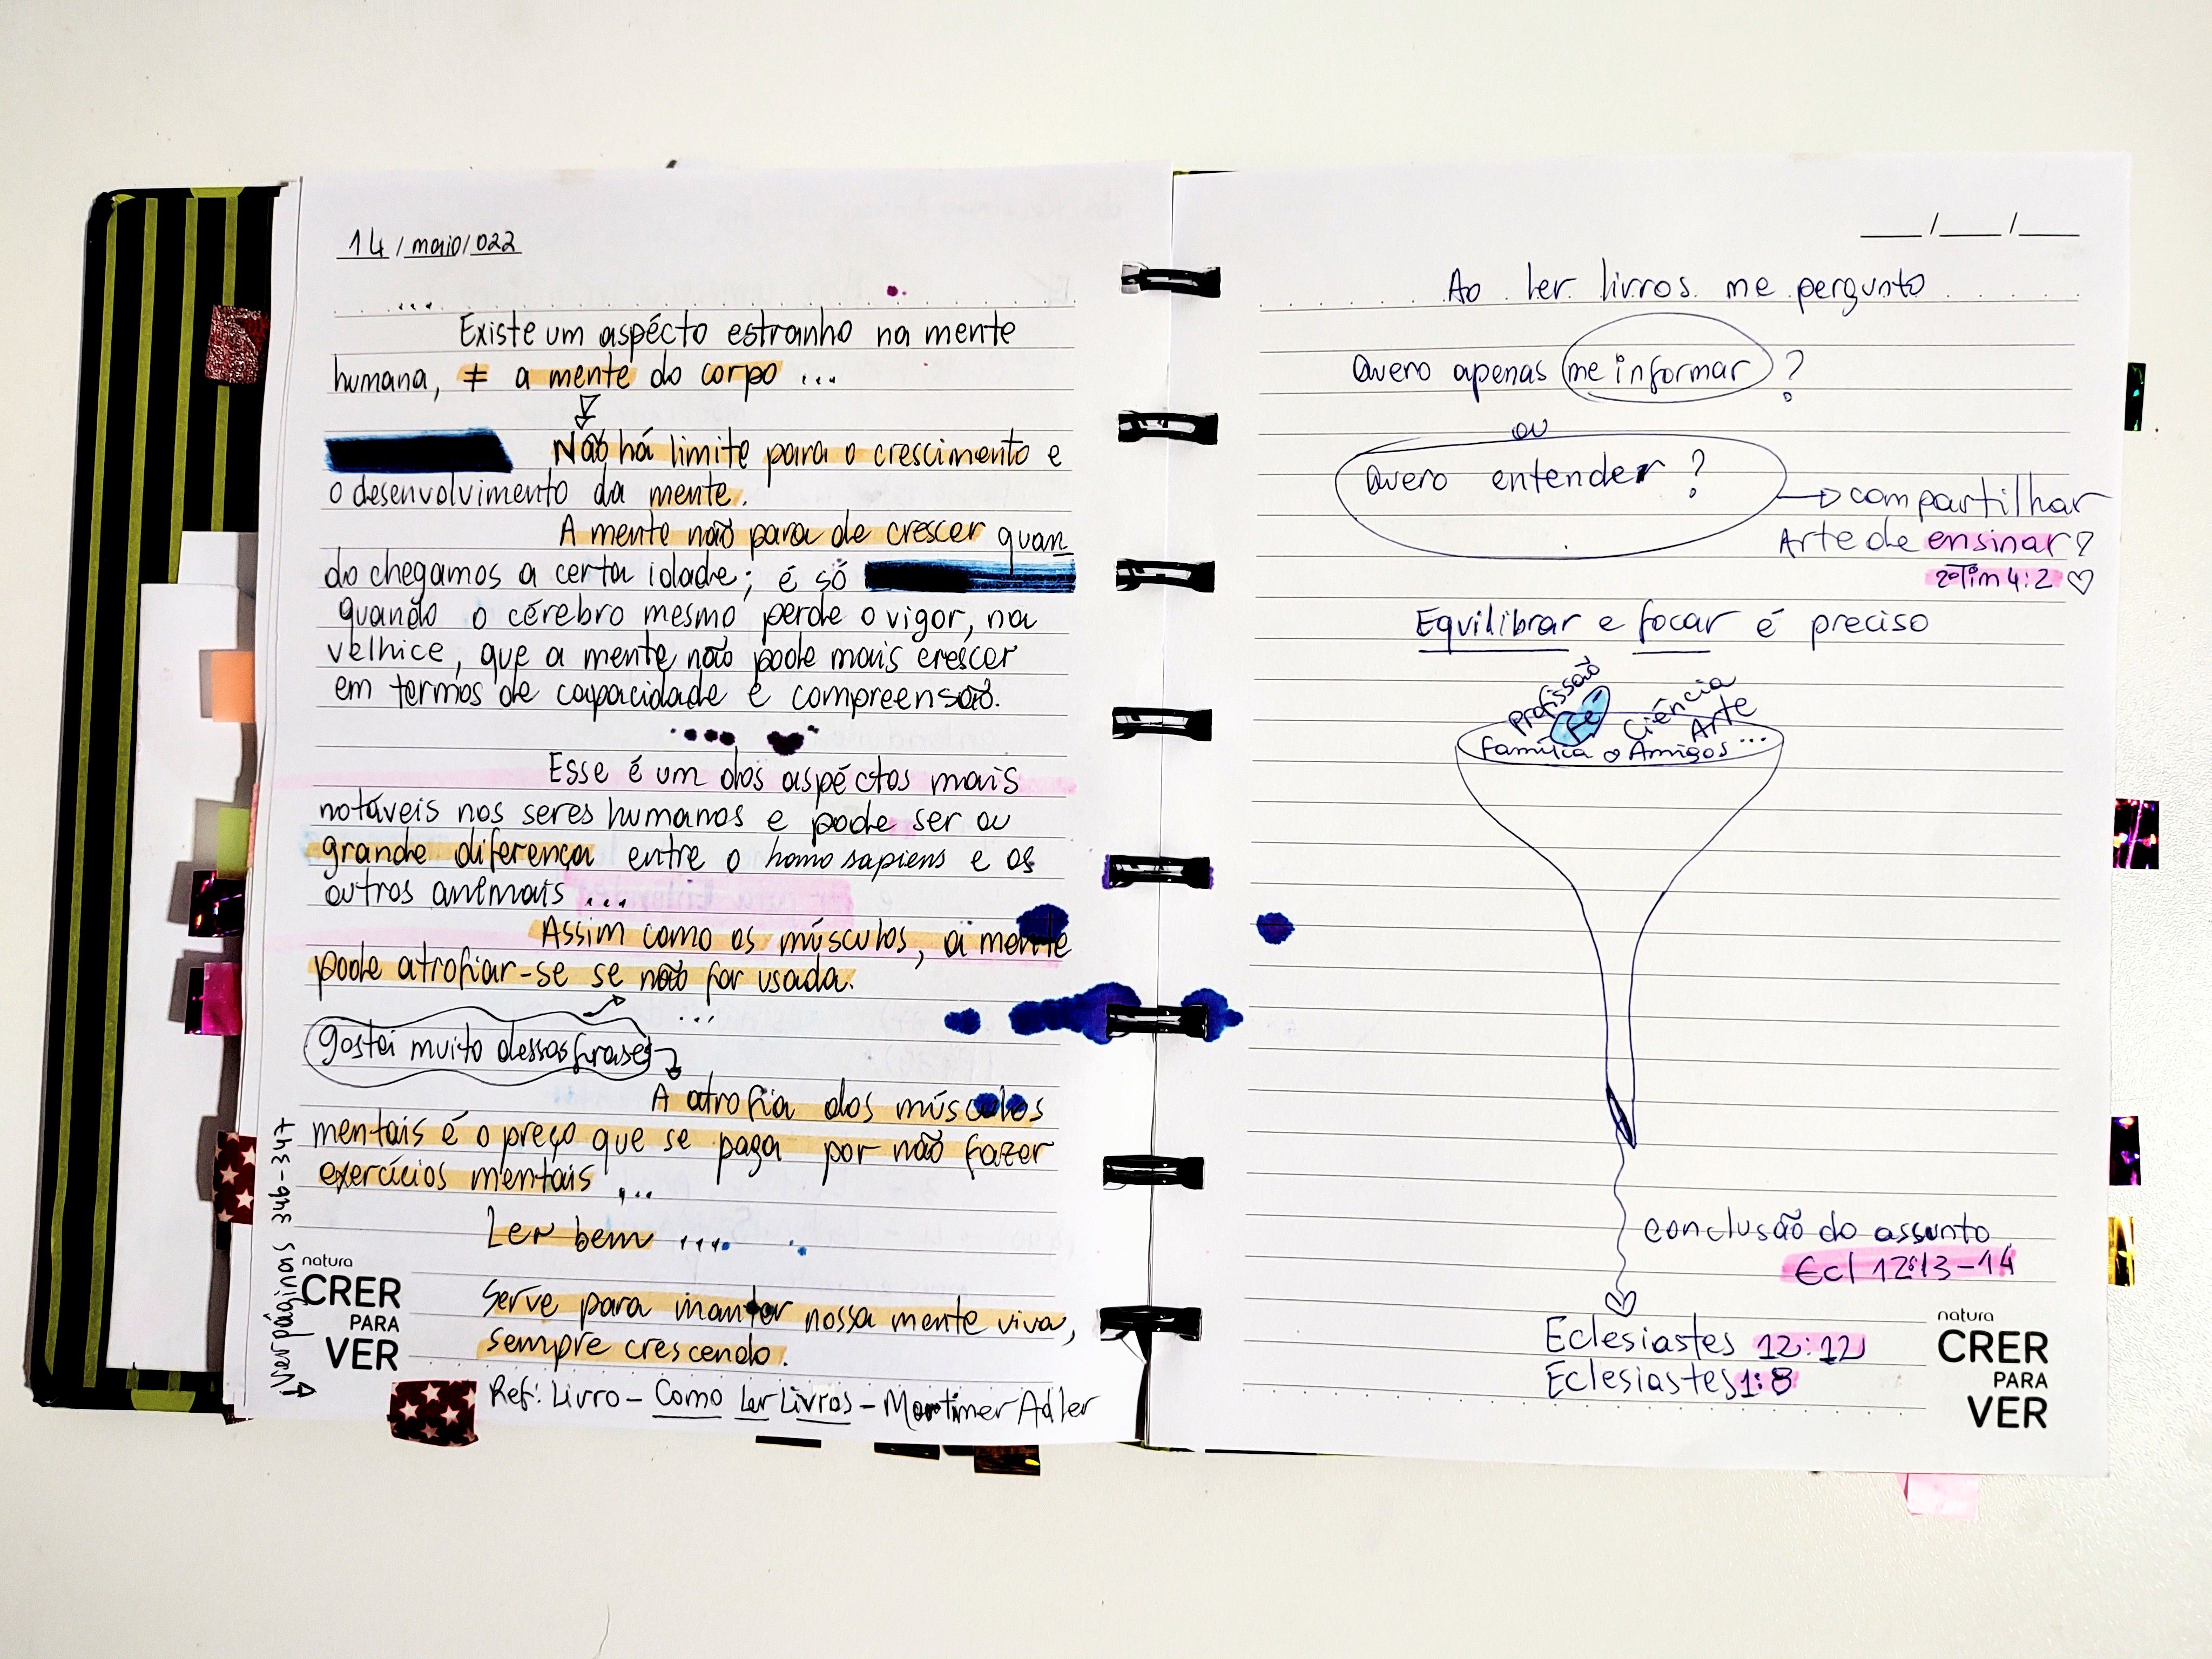 14/maio/022
...
Existe um aspécto estranho na mente
humana, ≠ a mente do corpo ...
Não há limite para o crescimento e
o desenvolvimento da mente.
A mente não para de crescer quan
do chegamos a certa idade; é só
quando o cérebro mesmo perde o vigor, na
velhice, que a mente não pode mais crescer
em termos de capacidade e compreensão.
...
Esse é um dos aspéctos mais
notáveis nos seres humanos e pode ser ou
grande diferença entre o homo sapiens e os
outros animais ...
Assim como os músculos, a mente
pode atrofiar-se se não for usada.
...
gostei muito dessas frases
A atrofia dos músculos
mentais é o preço que se paga por não fazer
exercícios mentais ...
Ler bem ....
Serve para manter nossa mente viva,
sempre crescendo.
Ref: Livro - Como Ler Livros - Mortimer Adler
Ver páginas 346-347
natura
CRER
PARA
VER
__/__/__
Ao ler livros me pergunto
Quero apenas me informar ?
ou
Quero entender ?
compartilhar
Arte de ensinar?
2ºTim 4:2 ♡
Equilibrar e focar é preciso
profissão
Fé
Ciência
Arte
família e Amigos ...
conclusão do assunto
Ecl 12:13-14
Eclesiastes 12:12
Eclesiastes 1:8
natura
CRER
PARA
VER